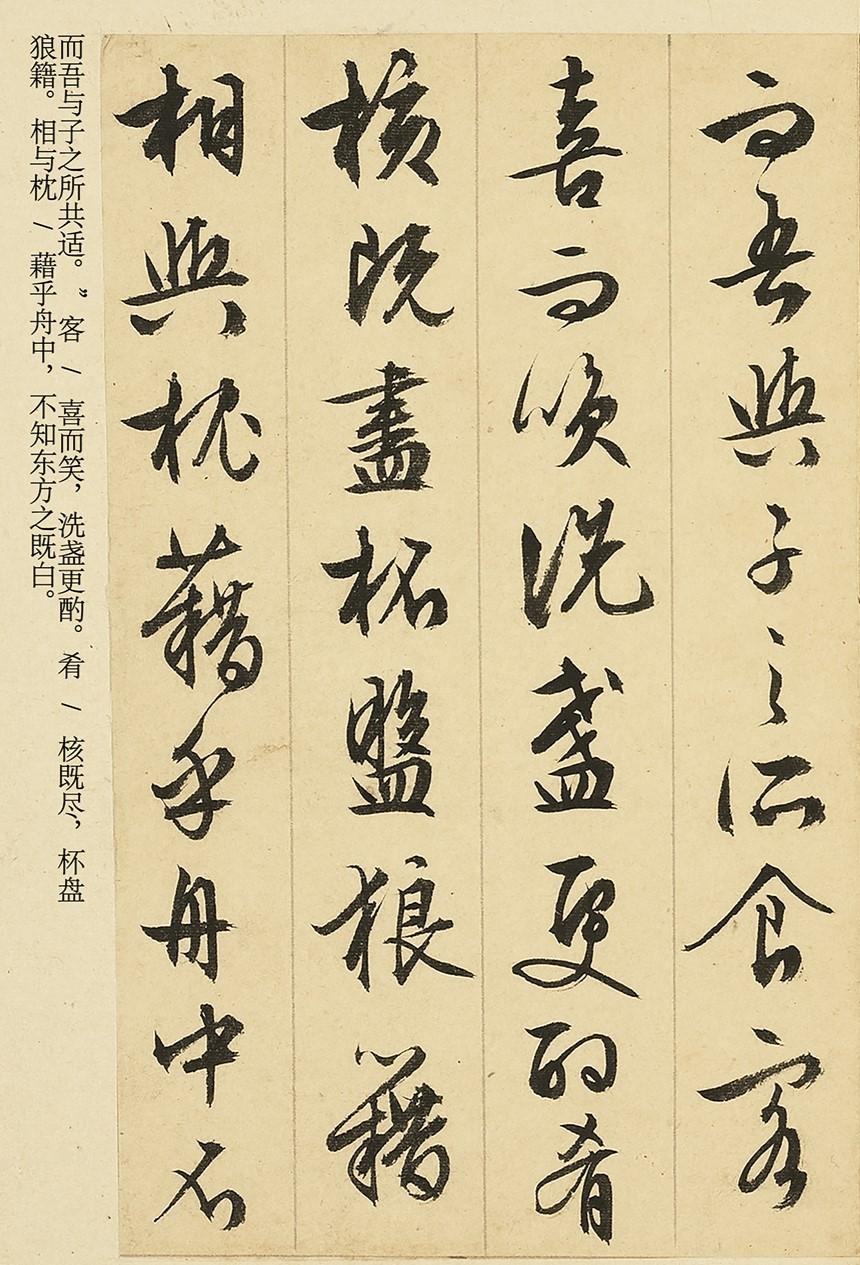 而吾與子之所食客
喜而咲洗盞更酌肴
核既盡杯盤狼籍
相與枕藉乎舟中不
而吾与子之所共适。”客 / 喜而笑，洗盏更酌。肴 / 核既尽，杯盘
狼籍。相与枕 / 藉乎舟中，不知东方之既白。